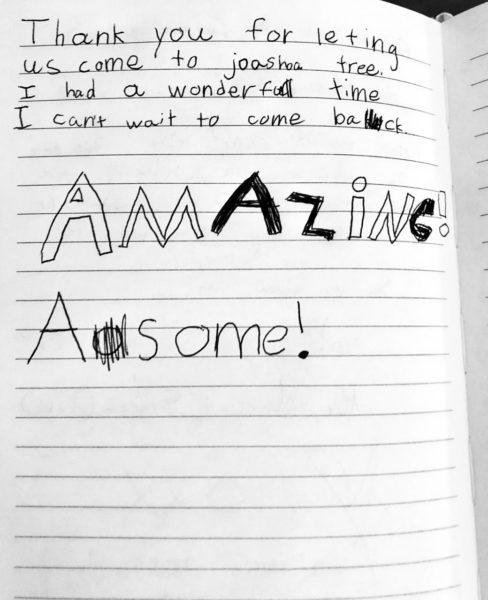 Thank you for leting
us come to joashoa tree.
I had a wonderfull time
I can't wait to come back.
AMAZiNG!
Awsome!